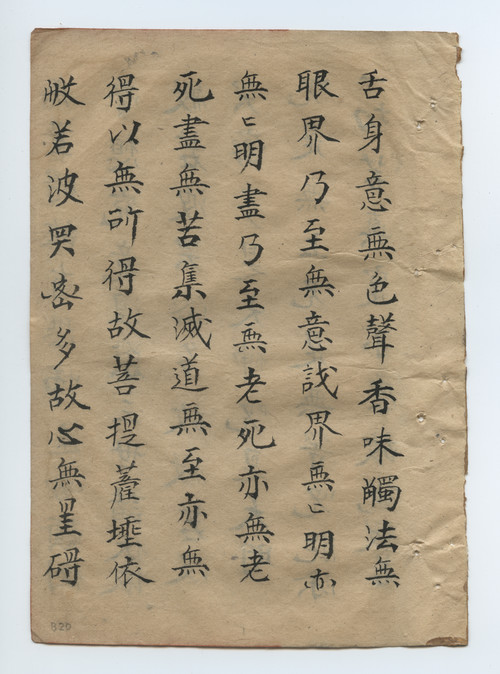 舌身意無色聲香味觸法無
眼界乃至無意識界無〻明亦
無〻明盡乃至無老死亦無老
死盡無苦集滅道無至亦無
得以無所得故菩提薩埵依
般若波罗密多故心無罣碍
B20